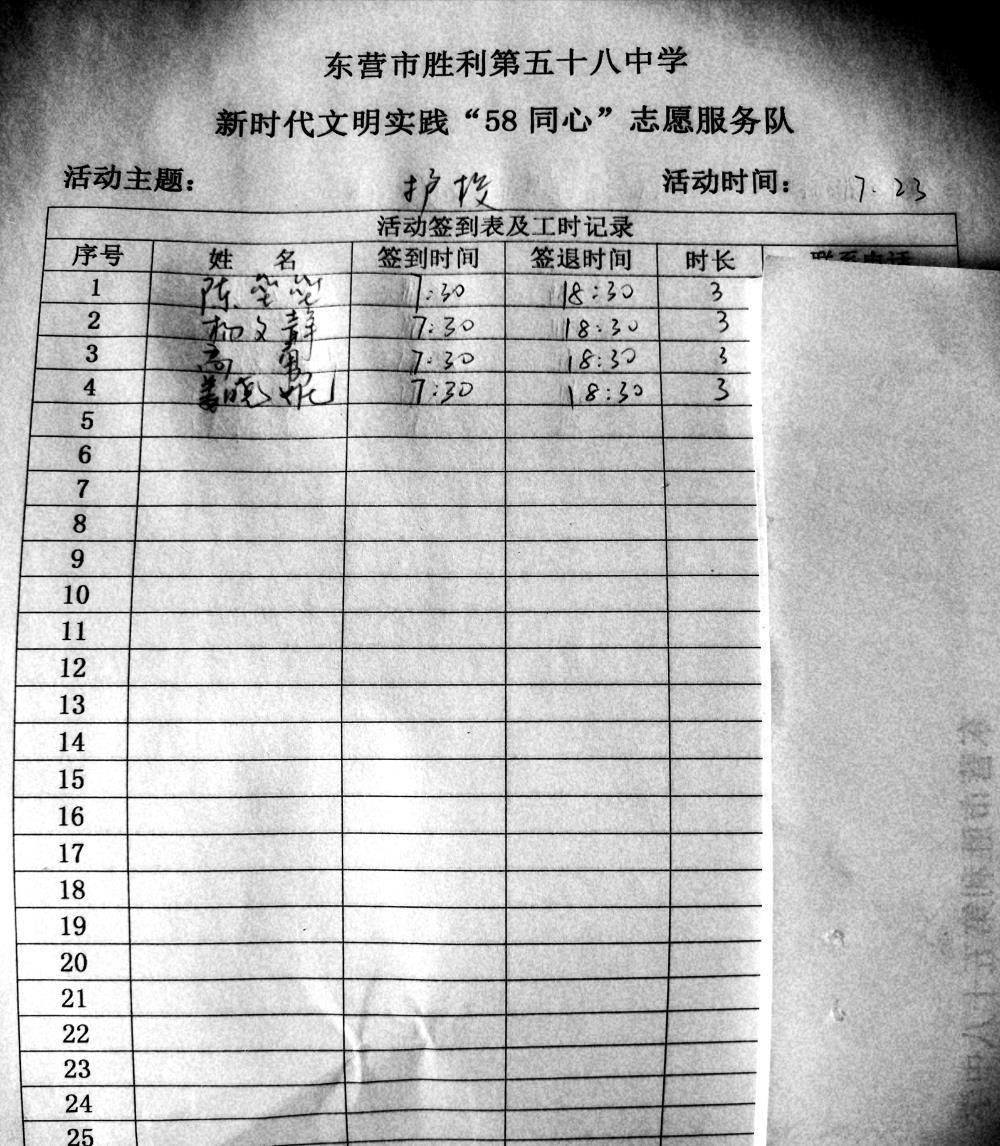 东营市胜利第五十八中学
新时代文明实践“58同心”志愿服务队
活动主题： 护校 活动时间： 7.23
活动签到表及工时记录
序号 姓 名 签到时间 签退时间 时长 联系电话
1 陈莹莹 7:30 18:30 3
2 杨文静 7:30 18:30 3
3 高勇 7:30 18:30 3
4 姜晓妮 7:30 18:30 3
5
6
7
8
9
10
11
12
13
14
15
16
17
18
19
20
21
22
23
24
25